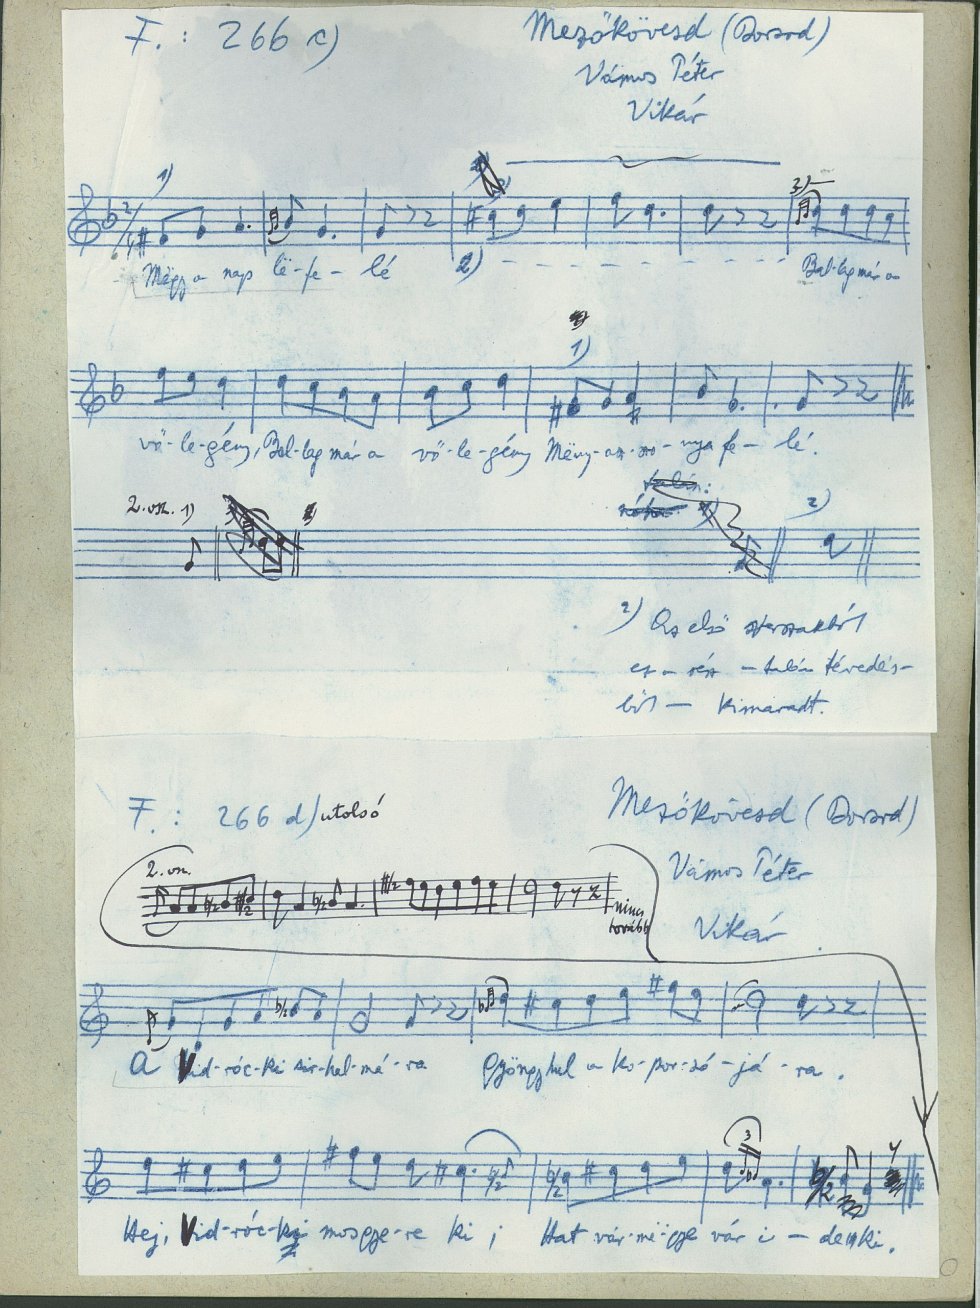 F. : 266 c)
Mezőkövesd (Borsod)
Vámos Péter
Vikár
1)
3)
2/4
Mëgy a nap lë-fe-lé 2) Bal-lag már a
1)
vő-le-gény, Bal-lag már a vő-le-gény Mëny-as-szo-nya fe-lé.
2. vsz. 1)
2)
2) Az első versszakból
ez a rész - talán tévedés-
ből - kimaradt.
F. : 266 d) utolsó
Mezőkövesd (Borsod)
2. vsz.
Vámos Péter
nincs
tovább
Vikár
A Vid-róc-ki sír-hal-má-ra Gyöngyhal a ko-por-só-já-ra.
3
Hej, Vid-róc-ki mosgye-re ki, Hat vár-me-gye vár i-denki.